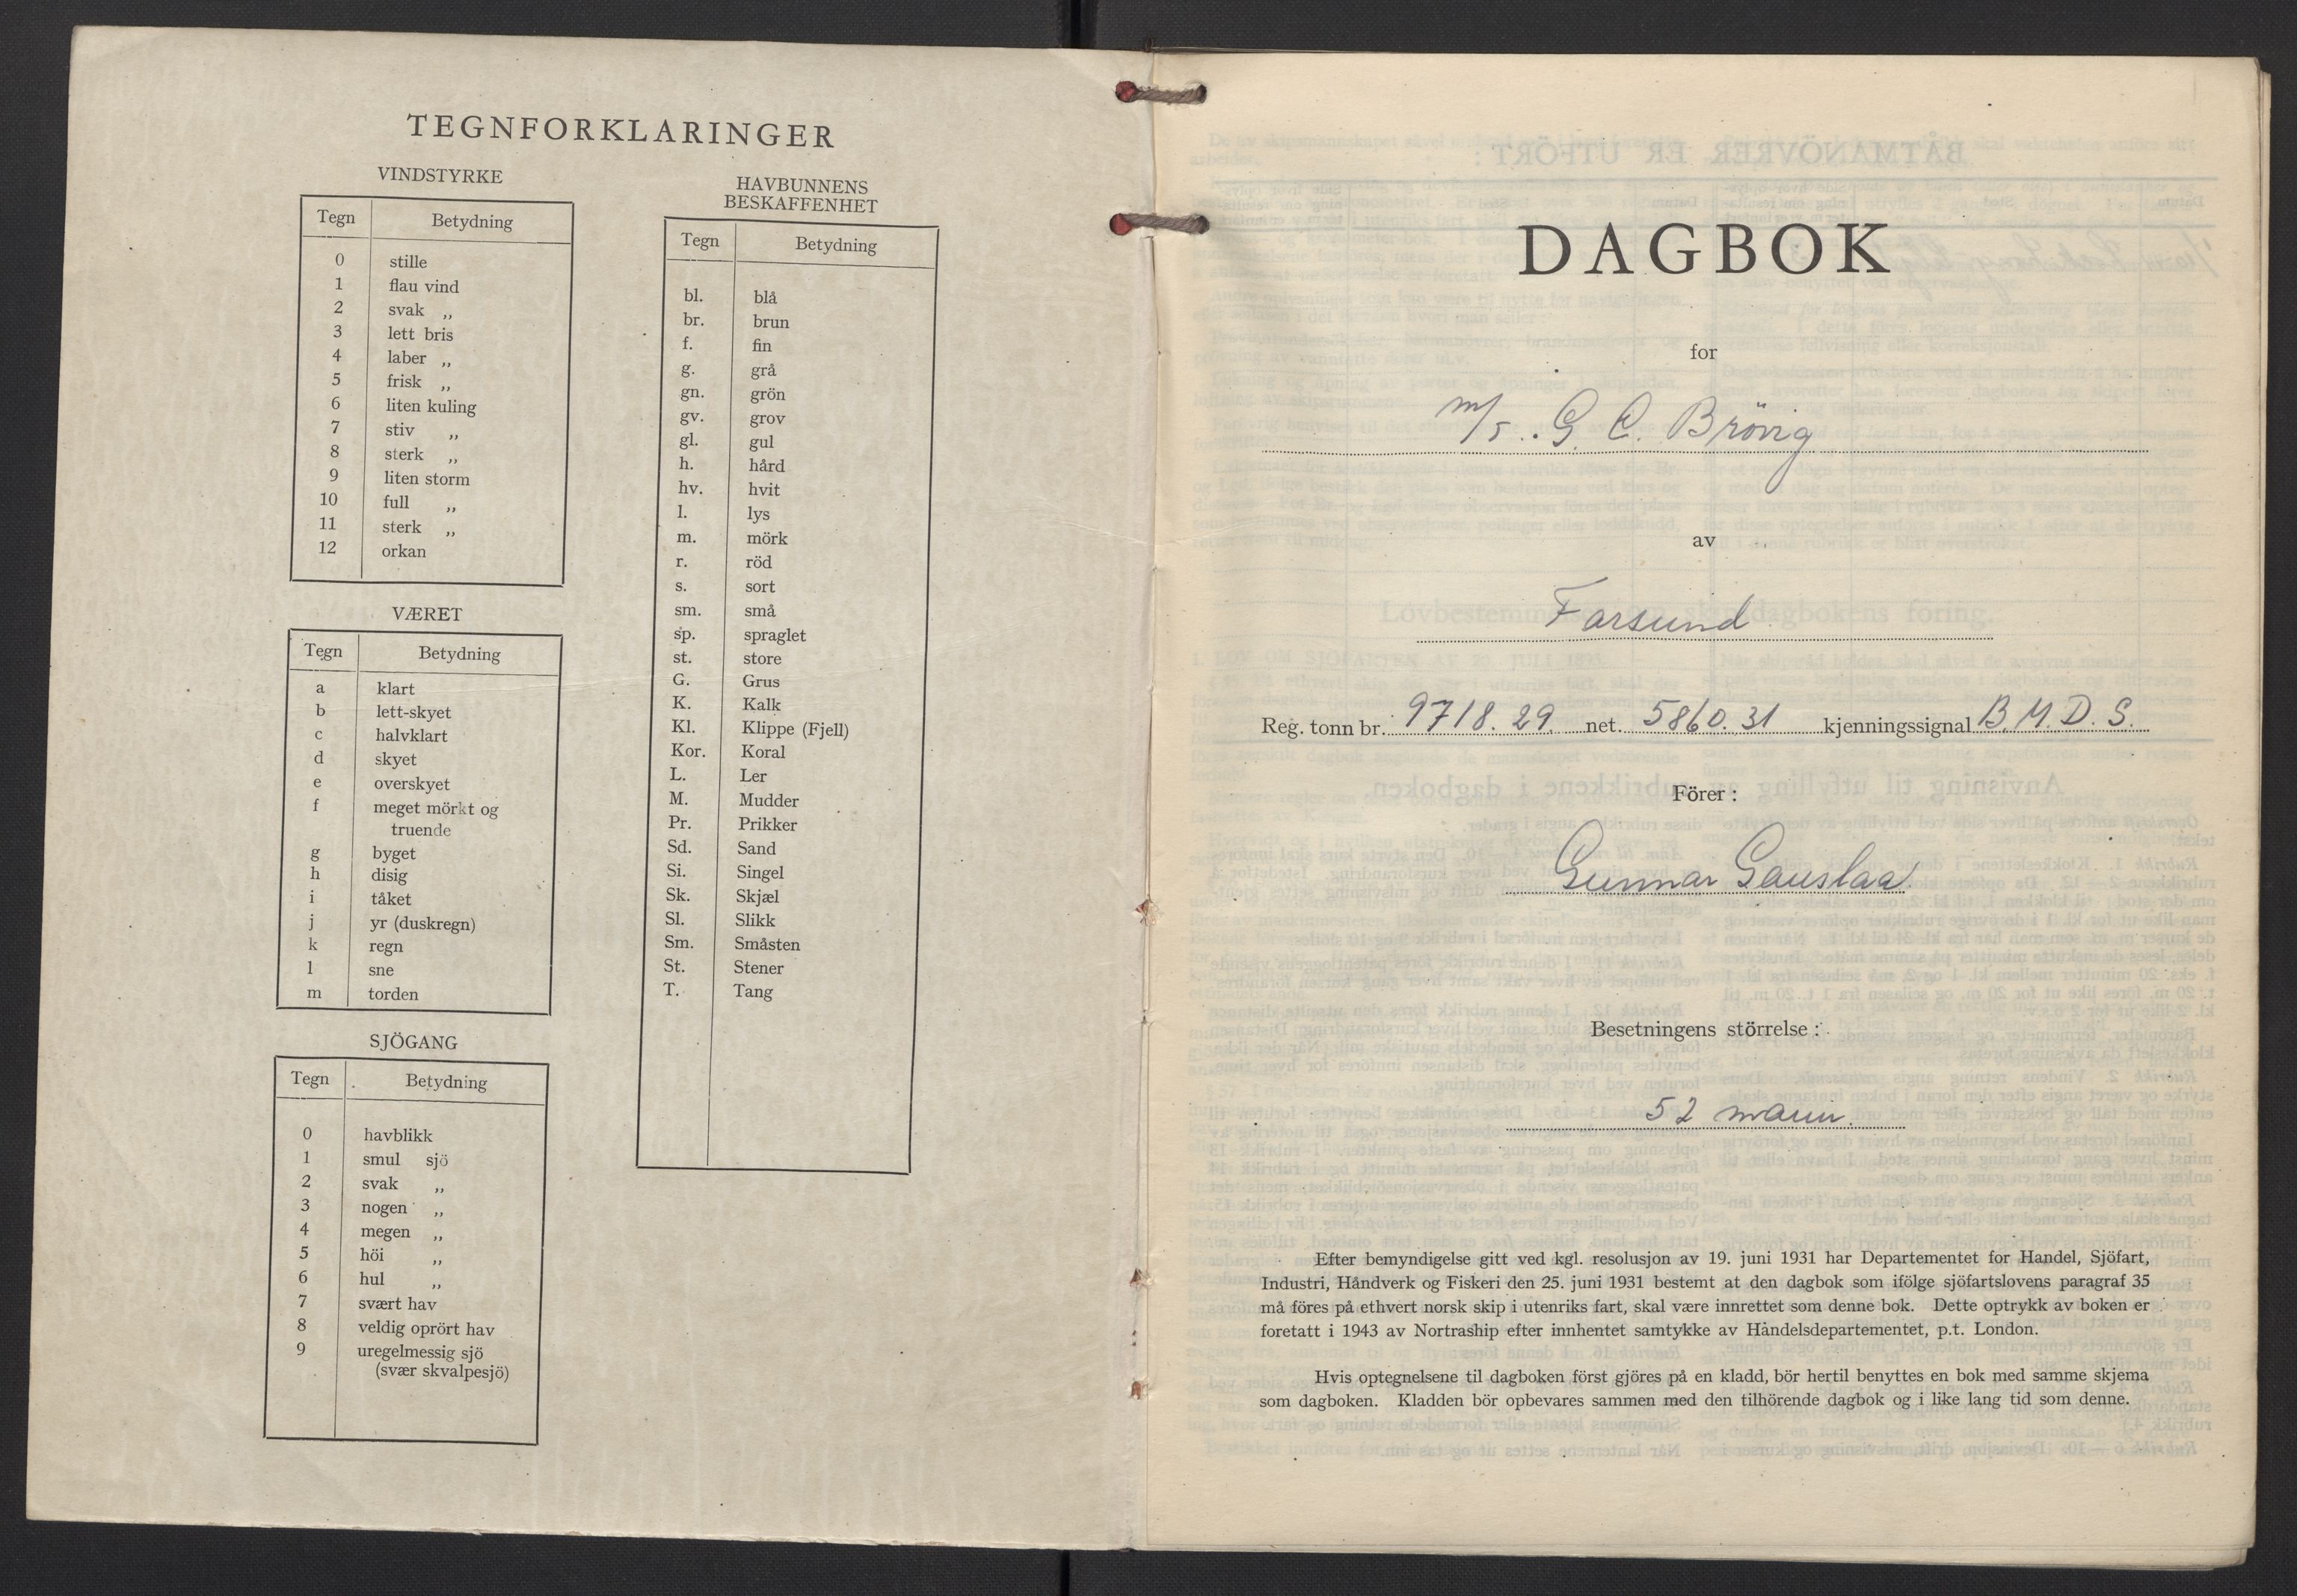 TEGNFORKLARINGER
VINDSTYRKE
Tegn Betydning
0 stille
1 flau vind
2 svak ,,
3 lett bris
4 laber ,,
5 frisk ,,
6 liten kuling
7 stiv ,,
8 sterk ,,
9 liten storm
10 full ,,
11 sterk ,,
12 orkan
VÆRET
Tegn Betydning
a klart
b lett-skyet
c halvklart
d skyet
e overskyet
f meget mörkt og
truende
g byget
h disig
i tåket
j yr (duskregn)
k regn
l sne
m torden
SJÖGANG
Tegn Betydning
0 havblikk
1 smul sjö
2 svak ,,
3 nogen ,,
4 megen ,,
5 höi ,,
6 hul ,,
7 svært hav
8 veldig oprört hav
9 uregelmessig sjö
(svær skvalpesjö)
HAVBUNNENS
BESKAFFENHET
Tegn Betydning
bl. blå
br. brun
f. fin
g. grå
gn. grön
gv. grov
gl. gul
h. hård
hv. hvit
l. lys
m. mörk
r. röd
s. sort
sm. små
sp. spraglet
st. store
G. Grus
K. Kalk
Kl. Klippe (Fjell)
Kor. Koral
L. Ler
M. Mudder
Pr. Prikker
Sd. Sand
Si. Singel
Sk. Skjæl
Sl. Slikk
Sm. Småsten
St. Stener
T. Tang
DAGBOK
for
m/s. G. C. Brövig
av
Farsund
Reg. tonn br. 9718.29. net. 5860.31 kjenningssignal B.M.D.S.
Förer :
Gunnar Gauslaa
Besetningens störrelse :
52 mann.
Efter bemyndigelse gitt ved kgl. resolusjon av 19. juni 1931 har Departementet for Handel, Sjöfart,
Industri, Håndverk og Fiskeri den 25. juni 1931 bestemt at den dagbok som ifölge sjöfartslovens paragraf 35
må föres på ethvert norsk skip i utenriks fart, skal være innrettet som denne bok. Dette optrykk av boken er
foretatt i 1943 av Nortraship efter innhentet samtykke av Håndelsdepartementet, p.t. London.
Hvis optegnelsene til dagboken först gjöres på en kladd, bör hertil benyttes en bok med samme skjema
som dagboken. Kladden bör opbevares sammen med den tilhörende dagbok og i like lang tid som denne.